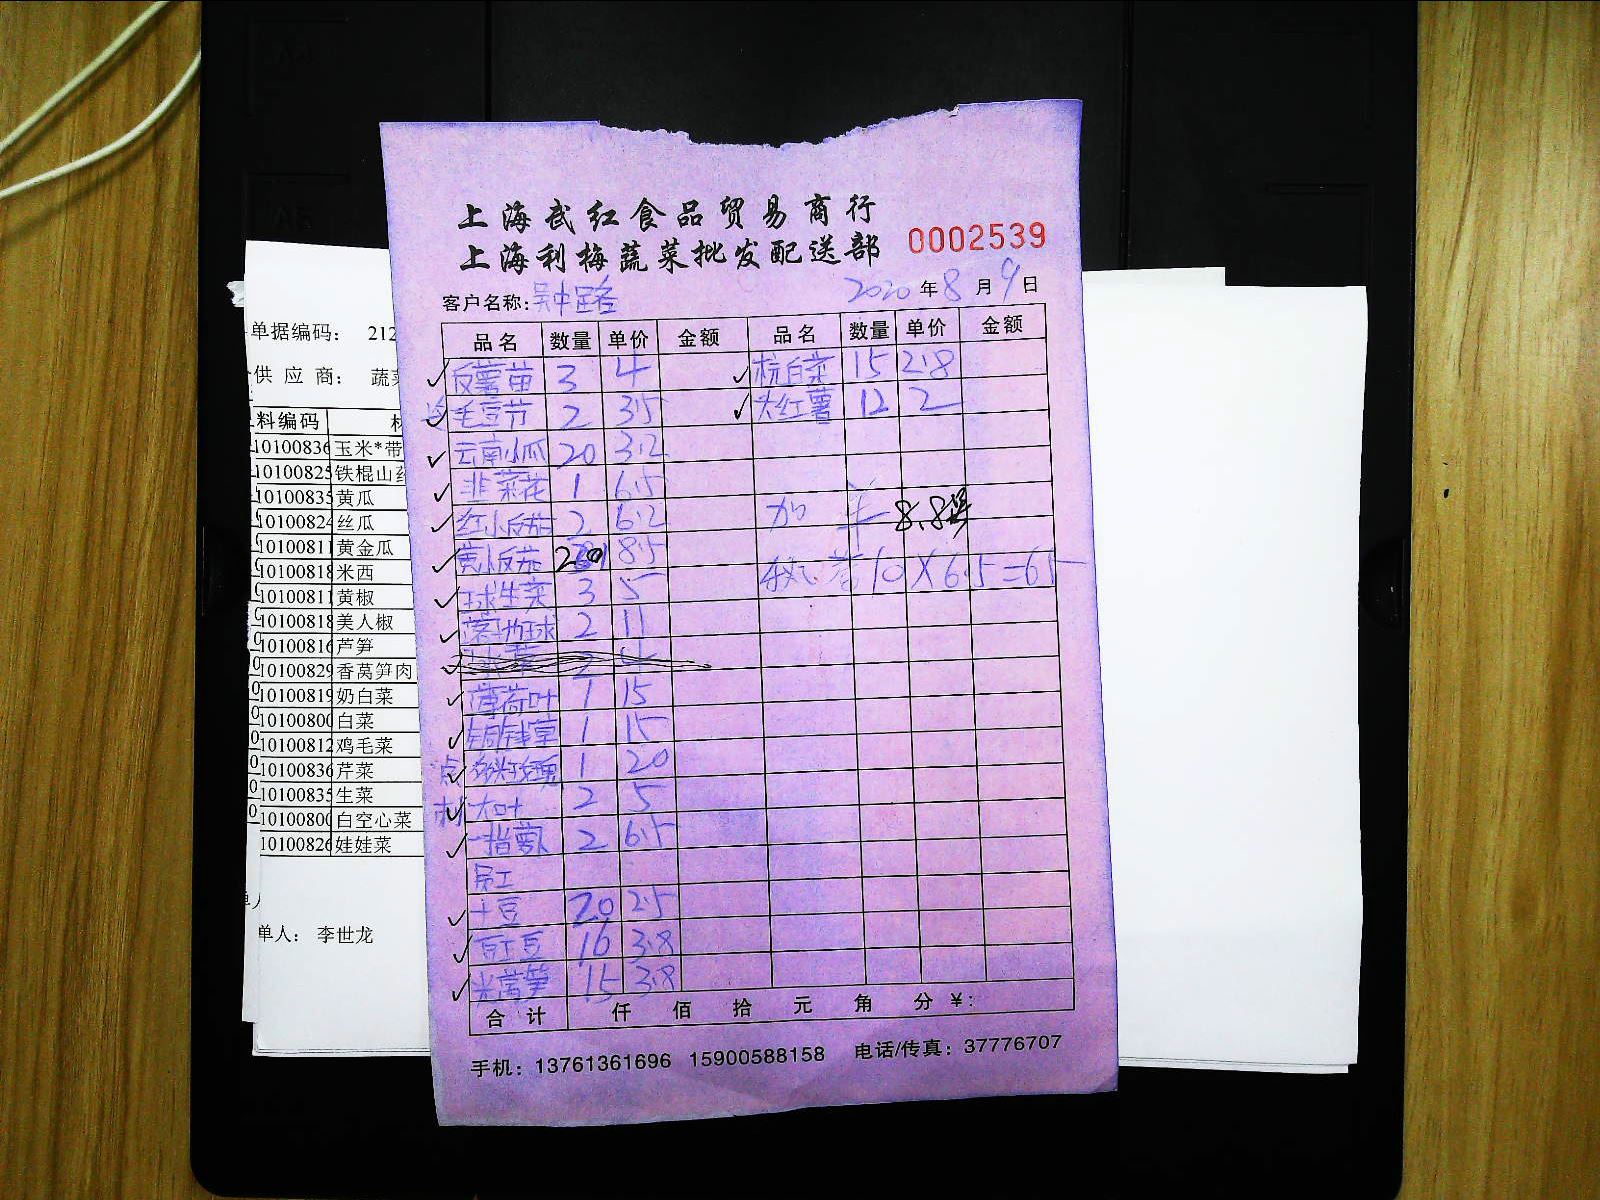 上海武红食品贸易商行
上海利梅蔬菜批发配送部
0002539
客户名称: 吴中路
2020 年 8 月 9 日
品名 数量 单价 金额 品名 数量 单价 金额
反薯苗 3 4 杭白菜 15 2.8
毛豆节 2 3.5 大红薯 12 2
云南小瓜 20 3.2
韭菜花 1 6.5
红小反茄 2 6.2
黄小反茄 8.5
球生菜 3 5
2 11
薄荷叶 1 15
铜钱草 1 15
1 20
大叶 2 5
一指蕉 2 6.5
员工
土豆 20 2.5
豇豆 16 3.8
米莴笋 15 3.8
加
8.8
10 X 6.5 = 65
合计 仟 佰 拾 元 角 分 ¥:
手机: 13761361696 15900588158 电话/传真: 37776707
单据编码: 212
供 应 商: 蔬菜
料编码 材
10100836 玉米*带
10100825 铁棍山药
10100835 黄瓜
10100824 丝瓜
10100811 黄金瓜
10100818 米西
10100811 黄椒
10100818 美人椒
10100816 芦笋
10100829 香莴笋肉
10100819 奶白菜
10100800 白菜
10100812 鸡毛菜
10100836 芹菜
10100835 生菜
10100800 白空心菜
10100826 娃娃菜
单人: 李世龙